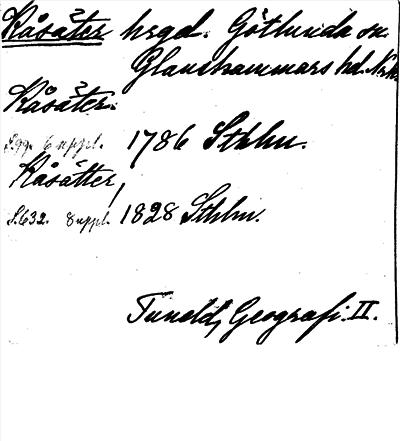 Kåsäter hrgd. Götlunda sn.
Glanshammars hd. Nrk
Kåsäter.
S.99. 6 uppl. 1786 Sthlm.
Kåsätter,
S.632. 8 uppl. 1828 Sthlm.
Tuneld, Geografi. II.